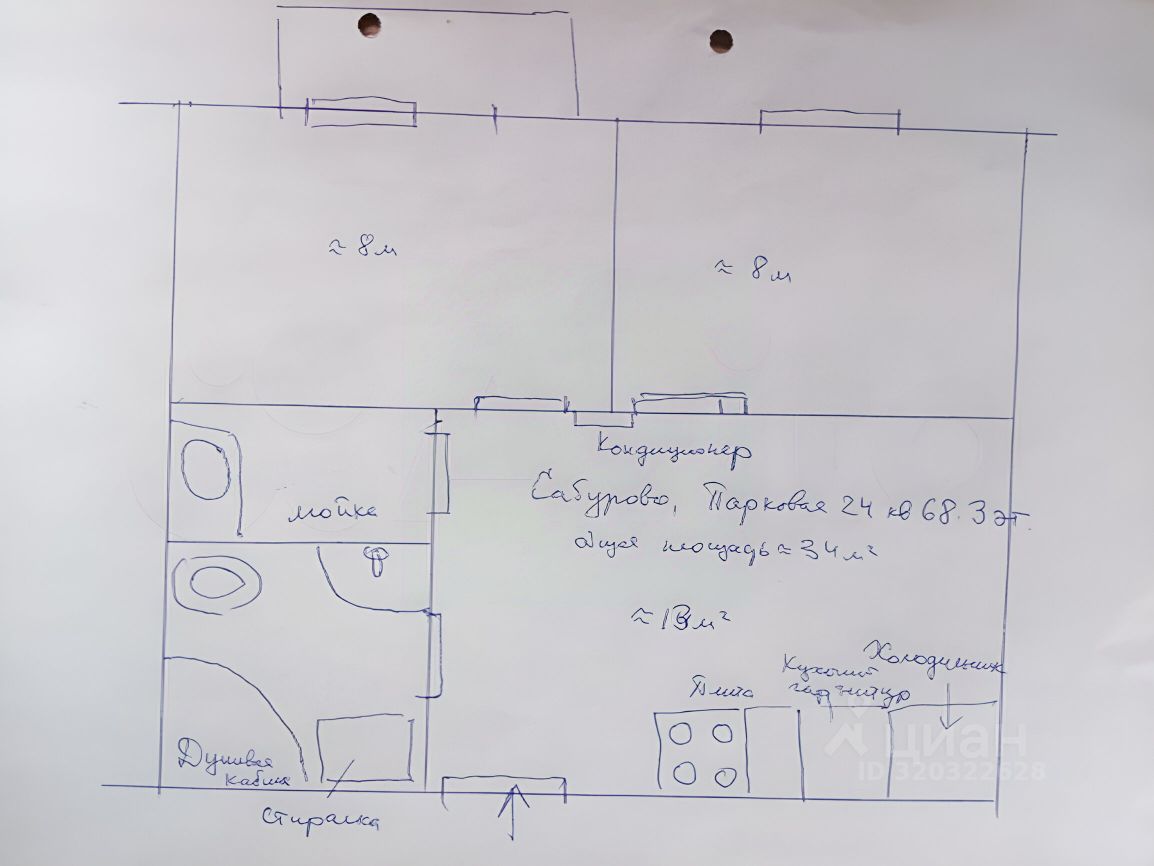 ≈ 8м
≈ 8м
Кондиционер
Сабурово, Парковая 24 кв 68. 3 эт.
общая площадь ≈ 34 м²
мойка
≈ 13 м²
Холодильник
Кухонный
гарнитур
Плита
Душевая
кабина
стиралка
циан
ID 320322628